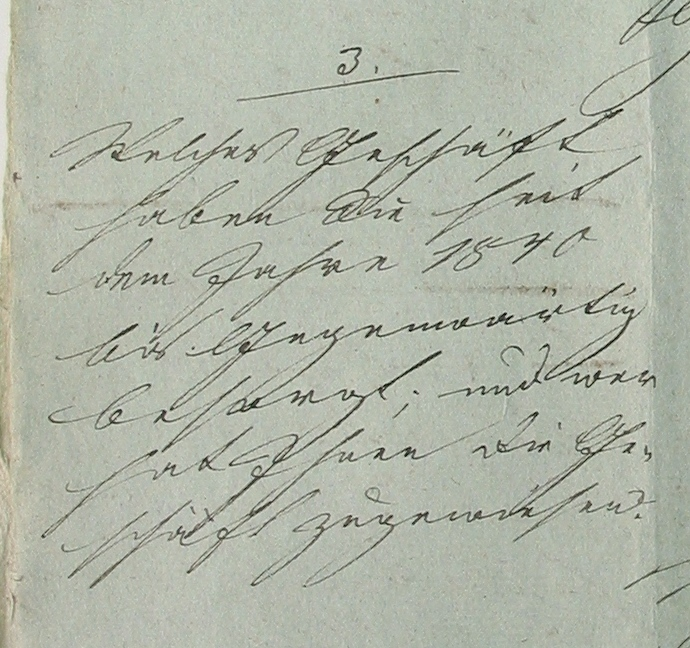 3.
Welches Geschäft
haben Sie seit
dem Jahre 1840
bis Gegenwärtig
besorgt, und wer
hat Ihnen die Ge-
schäft zugewiesen.